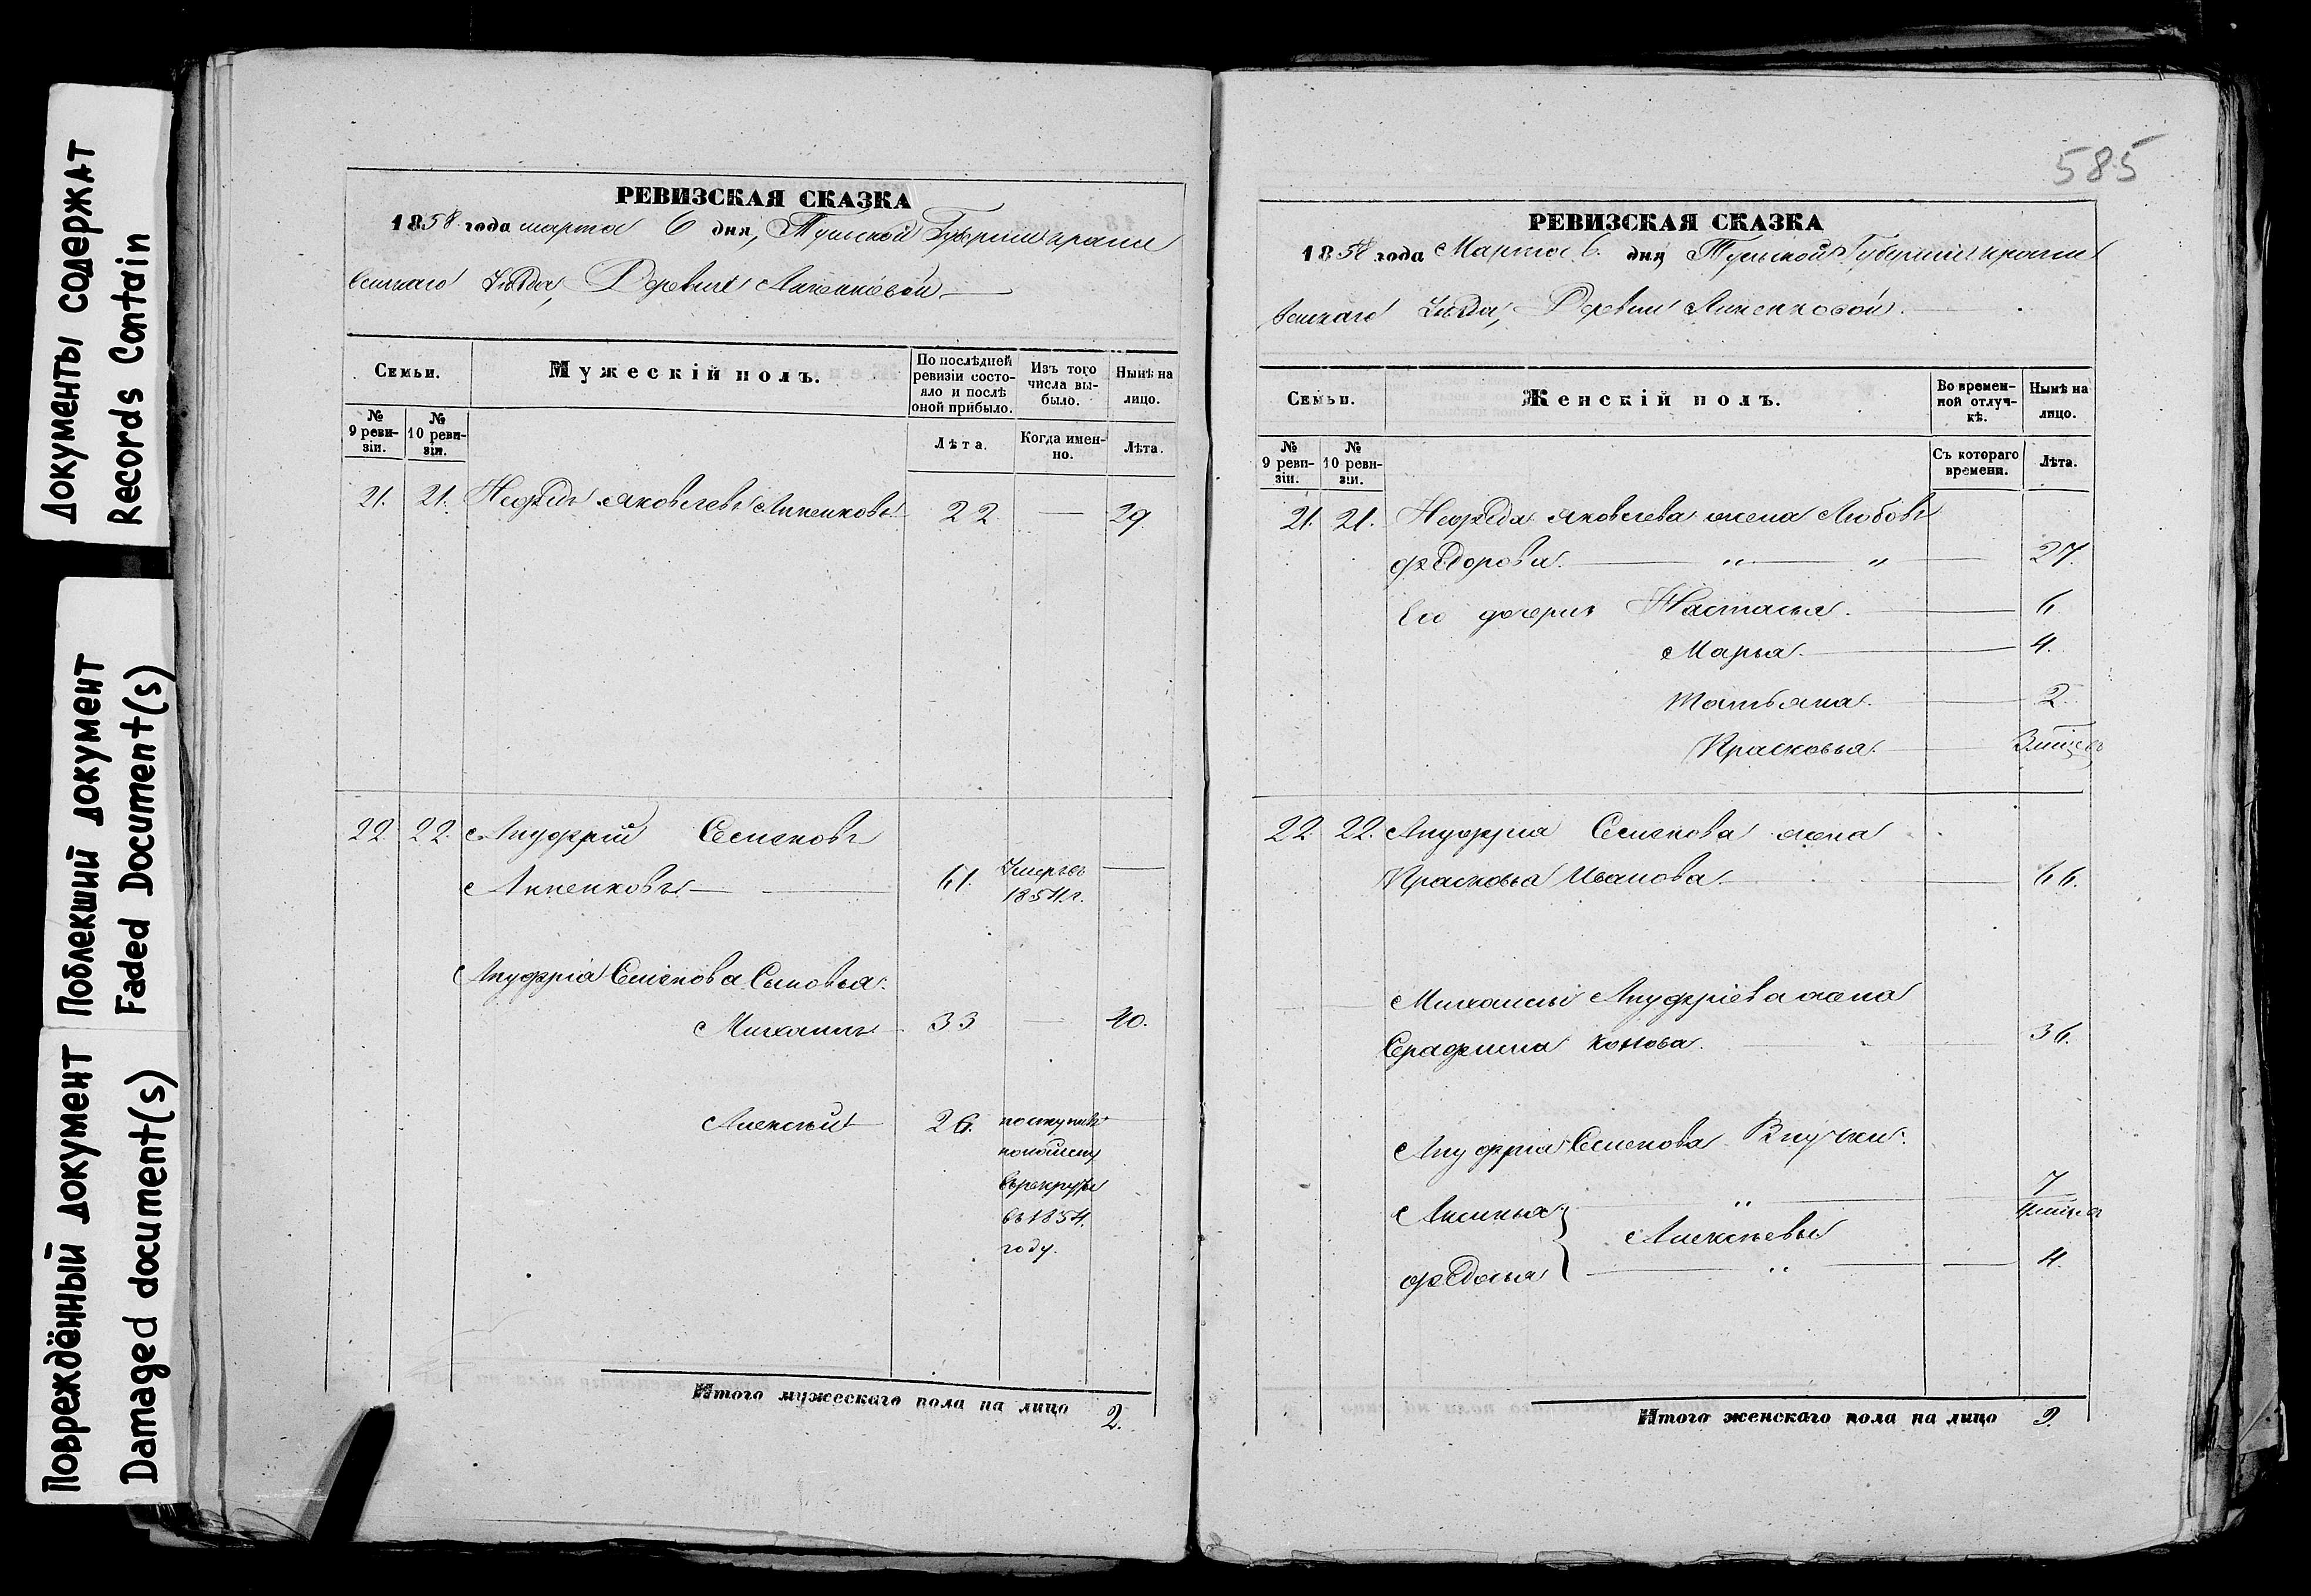 Документы содержат
Records Contain
Поблекший документ
Faded Document(s)
Повреждённый документ
Damaged document(s)
РЕВИЗСКАЯ СКАЗКА
1858 года марта 6 дня, Тульской Губернии крапи
венскаго Уѣзда, Деревни
Семьи.
Мужескій полъ.
По послѣдней ревизіи состояло и послѣ оной прибыло.
Изъ того числа выбыло.
Нынѣ на лицо.
№ 9 ревизіи.
№ 10 ревизіи.
Лѣта.
Когда именно.
Лѣта.
21. 21. Нефедъ Яковлевъ 22 — 29
22 22. Ануфрій Семеновъ
61. Умеръ въ
1854 г.
Ануфрія Семенова Сыновья:
Михаилъ 33 — 40.
Алексѣй 26. поступилъ
въ рекруты
въ 1854.
году.
Итого мужескаго пола на лицо 2.
585
РЕВИЗСКАЯ СКАЗКА
1858 года Марта 6. дня Тульской Губерніи крапи
венскаго Уѣзда, Деревни
Семьи.
Женскій полъ.
Во временной отлучкѣ.
Нынѣ на лицо.
№ 9 ревизіи.
№ 10 ревизіи.
Съ котораго времени.
Лѣта.
21. 21. Нефеда Яковлева жена Любовь
Федорова. — " — " — 27.
Его дочери Настасья. 6
Марья. 4.
Татьяна. 2.
Прасковья.
22. 22. Ануфрия Семенова жена
Прасковья Иванова. 66.
Михаилы Ануфріева жена
Серафима 36.
Ануфрія Семенова Внучки:
Аксинья " 7
Алексѣевы
Федосья " 4.
Итого женскаго пола на лицо 9.